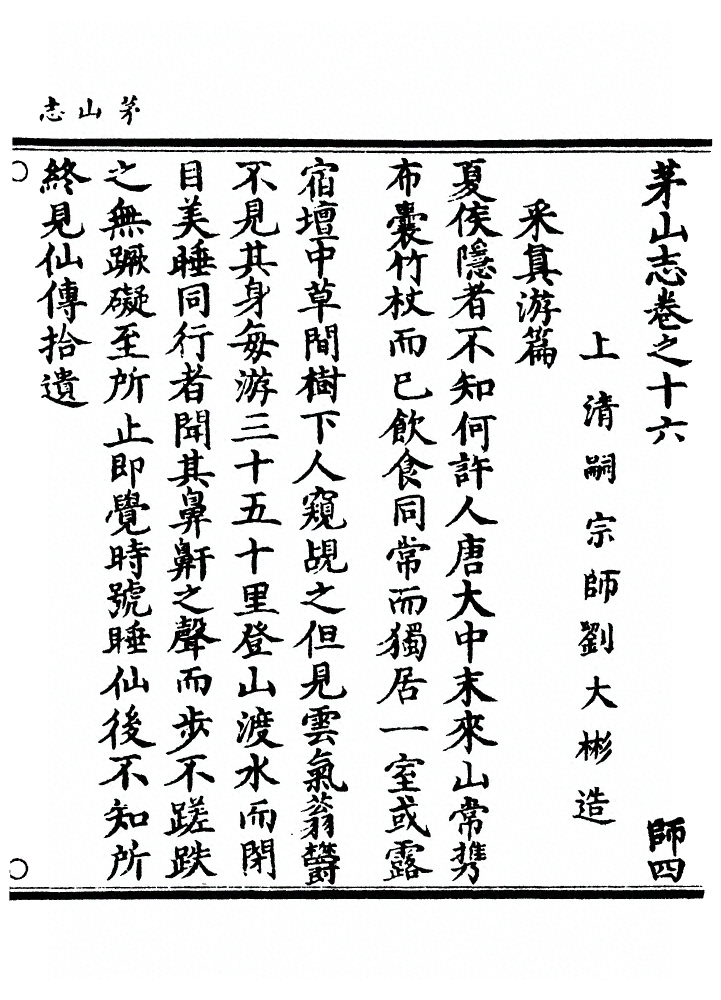 茅山志
茅山志卷之十六　師四
上清嗣宗師劉大彬造
采真游篇
夏侯隱者不知何許人唐大中末來山常携
布囊竹杖而已飲食同常而獨居一室或露
宿壇中草間樹下人窺覘之但見雲氣蓊鬱
不見其身每游三十五十里登山渡水而閉
目美睡同行者聞其鼻鼾之聲而步不蹉跌
之無蹶礙至所止即覺時號睡仙後不知所
終見仙傳拾遺